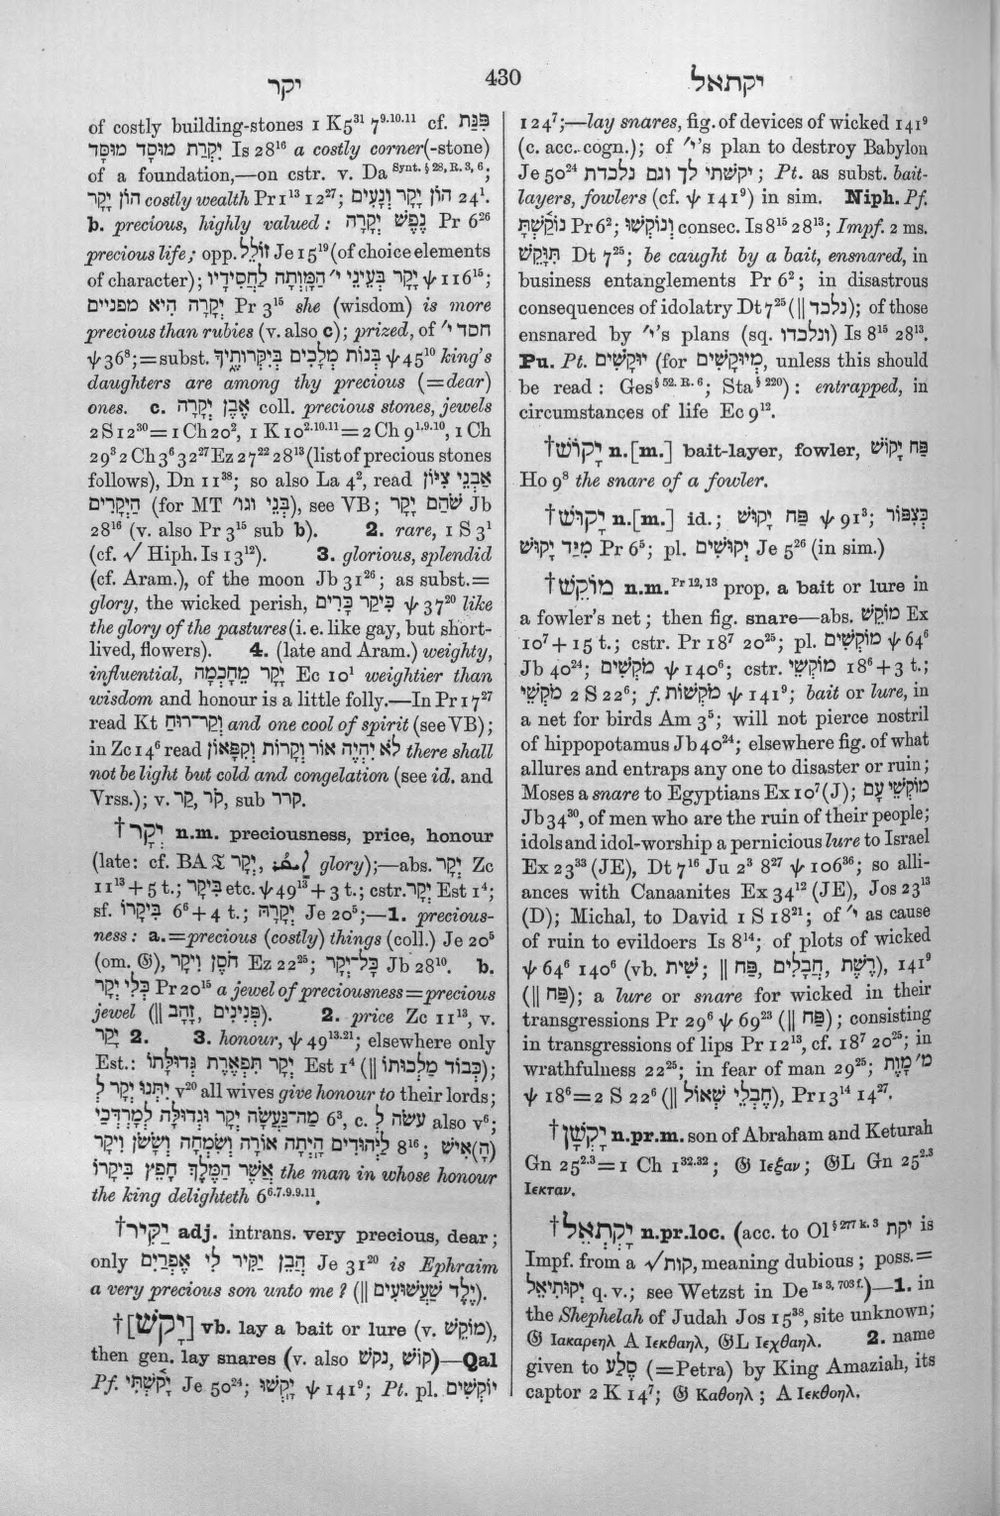 יקר
430
יקתאל
of costly building-stones 1 K5³¹ 7⁹·¹⁰·¹¹ cf. פִּנַּת
יִקְרַת מוּסָד מוּסָּד Is 28¹⁶ a costly corner(-stone)
of a foundation,—on cstr. v. Da Synt. § 28, R. 3, 6;
הוֹן יָקָר costly wealth Pr 1¹³ 12²⁷; הוֹן יָקָר וְנָעִים 24⁴.
b. precious, highly valued: נֶפֶשׁ יְקָרָה Pr 6²⁶
precious life; opp. זוֹלֵל Je 15¹⁹ (of choice elements
of character); יָקָר בְּעֵינֵי י׳ הַמָּוְתָה לַחֲסִידָיו ψ 116¹⁵;
יְקָרָה הִיא מפניים Pr 3¹⁵ she (wisdom) is more
precious than rubies (v. also c); prized, of חסד י׳
ψ 36⁸;=subst. בְּנוֹת מְלָכִים בְּיִקְּרוֹתֶיךָ ψ 45¹⁰ king's
daughters are among thy precious (=dear)
ones. c. אֶבֶן יְקָרָה coll. precious stones, jewels
2 S 12³⁰=1 Ch 20², 1 K 10²·¹⁰·¹¹=2 Ch 9¹·⁹·¹⁰, 1 Ch
29³ 2 Ch 3⁶ 32²⁷ Ez 27²² 28¹³ (list of precious stones
follows), Dn 11³⁸; so also La 4², read אַבְנֵי צִיּוֹן
הַיְקָרִים (for MT בְּנֵי וגו׳), see VB; שֹׁהַם יָקָר Jb
28¹⁶ (v. also Pr 3¹⁵ sub b). 2. rare, 1 S 3¹
(cf. √ Hiph. Is 13¹²). 3. glorious, splendid
(cf. Aram.), of the moon Jb 31²⁶; as subst.=
glory, the wicked perish, כִּיקַר כָּרִים ψ 37²⁰ like
the glory of the pastures (i. e. like gay, but short-
lived, flowers). 4. (late and Aram.) weighty,
influential, יָקָר מֵחָכְמָה Ec 10¹ weightier than
wisdom and honour is a little folly.—In Pr 17²⁷
read Kt וְקַר־רוּחַ and one cool of spirit (see VB);
in Zc 14⁶ read לֹא יִהְיֶה אוֹר וְקָרוֹת וְקִפָּאוֹן there shall
not be light but cold and congelation (see id. and
Vrss.); v. קַר, קֹר, sub קרר.
† יְקָר n.m. preciousness, price, honour
(late: cf. BA 𝔗 יְקָר, glory);—abs. יְקָר Zc
11¹³ + 5 t.; בִּיקָר etc. ψ 49¹³ + 3 t.; cstr. יְקָר Est 1⁴;
sf. בִּיקָרוֹ 6⁶ + 4 t.; יְקָרָהּ Je 20⁵;—1. precious-
ness: a.=precious (costly) things (coll.) Je 20⁵
(om. 𝔊), חֹסֶן וִיקָר Ez 22²⁵; כָּל־יְקָר Jb 28¹⁰. b.
כְּלִי יְקָר Pr 20¹⁵ a jewel of preciousness=precious
jewel (|| זָהָב, פְּנִינִים). 2. price Zc 11¹³, v.
יָקַר 2. 3. honour, ψ 49¹³·²¹; elsewhere only
Est.: יְקָר תִּפְאֶרֶת גְּדוּלָּתוֹ Est 1⁴ (|| כְּבוֹד מַלְכוּתוֹ);
יִתְּנוּ יְקָר לְ v²⁰ all wives give honour to their lords;
מַה־נַּעֲשָׂה יְקָר וּגְדוּלָּה לְמָרְדְּכַי 6³, c. עשׂה לְ also v⁶;
לַיְּהוּדִים הָיְתָה אוֹרָה וְשִׂמְחָה וְשָׂשׂן וִיקָר 8¹⁶; (הָ)אִישׁ
אֲשֶׁר הַמֶּלֶךְ חָפֵץ בִּיקָרוֹ the man in whose honour
the king delighteth 6⁶·⁷·⁹·⁹·¹¹.
† יַקִּיר adj. intrans. very precious, dear;
only הֲבֵן יַקִּיר לִי אֶפְרַיִם Je 31²⁰ is Ephraim
a very precious son unto me? (|| יֶלֶד שַׁעֲשׁוּעִים).
† [יָקֹשׁ] vb. lay a bait or lure (v. מוֹקֵשׁ),
then gen. lay snares (v. also נקשׁ, קוֹשׁ)—Qal
Pf. יָקֹשְׁתִּי Je 50²⁴; יָקְשׁוּ ψ 141⁹; Pt. pl. יוֹקְשִׁים
124⁷;—lay snares, fig. of devices of wicked 141⁹
(c. acc. cogn.); of י׳'s plan to destroy Babylon
Je 50²⁴ יקשׁתי לך וגם נלכדת; Pt. as subst. bait-
layers, fowlers (cf. ψ 141⁹) in sim. Niph. Pf.
נוֹקַשְׁתָּ Pr 6²; וְנוֹקְשׁוּ consec. Is 8¹⁵ 28¹³; Impf. 2 ms.
תִּוָּקֵשׁ Dt 7²⁵; be caught by a bait, ensnared, in
business entanglements Pr 6²; in disastrous
consequences of idolatry Dt 7²⁵ (|| נלכד); of those
ensnared by י׳'s plans (sq. ונלכדו) Is 8¹⁵ 28¹³.
Pu. Pt. יוּקָשִׁים (for מְיוּקָשִׁים, unless this should
be read: Ges § 52. R. 6; Sta § 220): entrapped, in
circumstances of life Ec 9¹².
† יָקוֹשׁ n.[m.] bait-layer, fowler, פַּח יָקוֹשׁ
Ho 9⁸ the snare of a fowler.
† יָקוּשׁ n.[m.] id.; פַּח יָקוּשׁ ψ 91³; כְּצִפּוֹר
מִיַּד יָקוּשׁ Pr 6⁵; pl. יְקוּשִׁים Je 5²⁶ (in sim.)
† מוֹקֵשׁ n.m. Pr 12, 13 prop. a bait or lure in
a fowler's net; then fig. snare—abs. מוֹקֵשׁ Ex
10⁷ + 15 t.; cstr. Pr 18⁷ 20²⁵; pl. מוֹקְשִׁים ψ 64⁶
Jb 40²⁴; מֹקְשִׁים ψ 140⁶; cstr. מוֹקְשֵׁי 18⁶ + 3 t.;
מֹקְשֵׁי 2 S 22⁶; f. מֹקְשׁוֹת ψ 141⁹; bait or lure, in
a net for birds Am 3⁵; will not pierce nostril
of hippopotamus Jb 40²⁴; elsewhere fig. of what
allures and entraps any one to disaster or ruin;
Moses a snare to Egyptians Ex 10⁷ (J); מוֹקְשֵׁי עָם
Jb 34³⁰, of men who are the ruin of their people;
idols and idol-worship a pernicious lure to Israel
Ex 23³³ (JE), Dt 7¹⁶ Ju 2³ 8²⁷ ψ 106³⁶; so alli-
ances with Canaanites Ex 34¹² (JE), Jos 23¹³
(D); Michal, to David 1 S 18²¹; of י׳ as cause
of ruin to evildoers Is 8¹⁴; of plots of wicked
ψ 64⁶ 140⁶ (vb. שׁית; || פַּח, חֲבָלִים, רֶשֶׁת), 141⁹
(|| פַּח); a lure or snare for wicked in their
transgressions Pr 29⁶ ψ 69²³ (|| פַּח); consisting
in transgressions of lips Pr 12¹³, cf. 18⁷ 20²⁵; in
wrathfulness 22²⁵; in fear of man 29²⁵; מ׳ מָוֶת
ψ 18⁶=2 S 22⁶ (|| חֶבְלֵי שְׁאוֹל), Pr 13¹⁴ 14²⁷.
† יָקְשָׁן n.pr.m. son of Abraham and Keturah
Gn 25²·³=1 Ch 1³²·³²; 𝔊 Ιεξαν; 𝔊L Gn 25²·³
Ιεκταν.
† יָקְתְאֵל n.pr.loc. (acc. to Ol § 277 k. 3 יקת is
Impf. from a √קות, meaning dubious; poss.=
יְקוּתִיאֵל q.v.; see Wetzst in De Is 3, 703 f.)—1. in
the Shephelah of Judah Jos 15³⁸, site unknown;
𝔊 Ιακαρεηλ A Ιεκθαηλ, 𝔊L Ιεχθαηλ. 2. name
given to סֶלַע (=Petra) by King Amaziah, its
captor 2 K 14⁷; 𝔊 Καθοηλ; A Ιεκθοηλ.